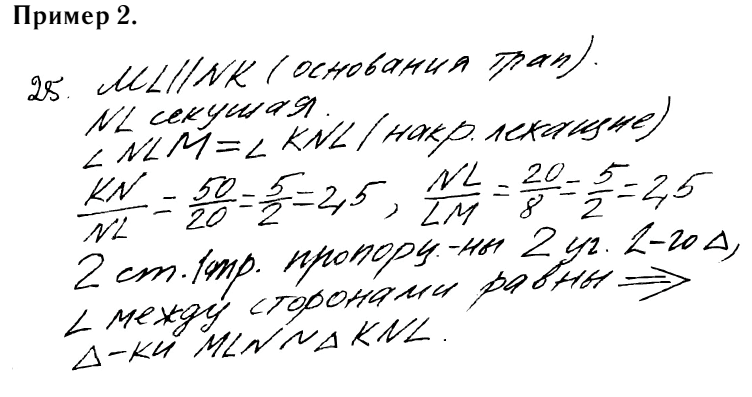 Пример 2.
25. ML||NK (основания трап).
NL секущая.
∠ NLM = ∠ KNL (накр. лежащие)
KN/NL = 50/20 = 5/2 = 2,5, NL/LM = 20/8 = 5/2 = 2,5
2 ст. 1 тр. пропорц.-ны 2 уг. 2-го △,
∠ между сторонами равны ⟹
△-ки MLN ~ △ KNL.